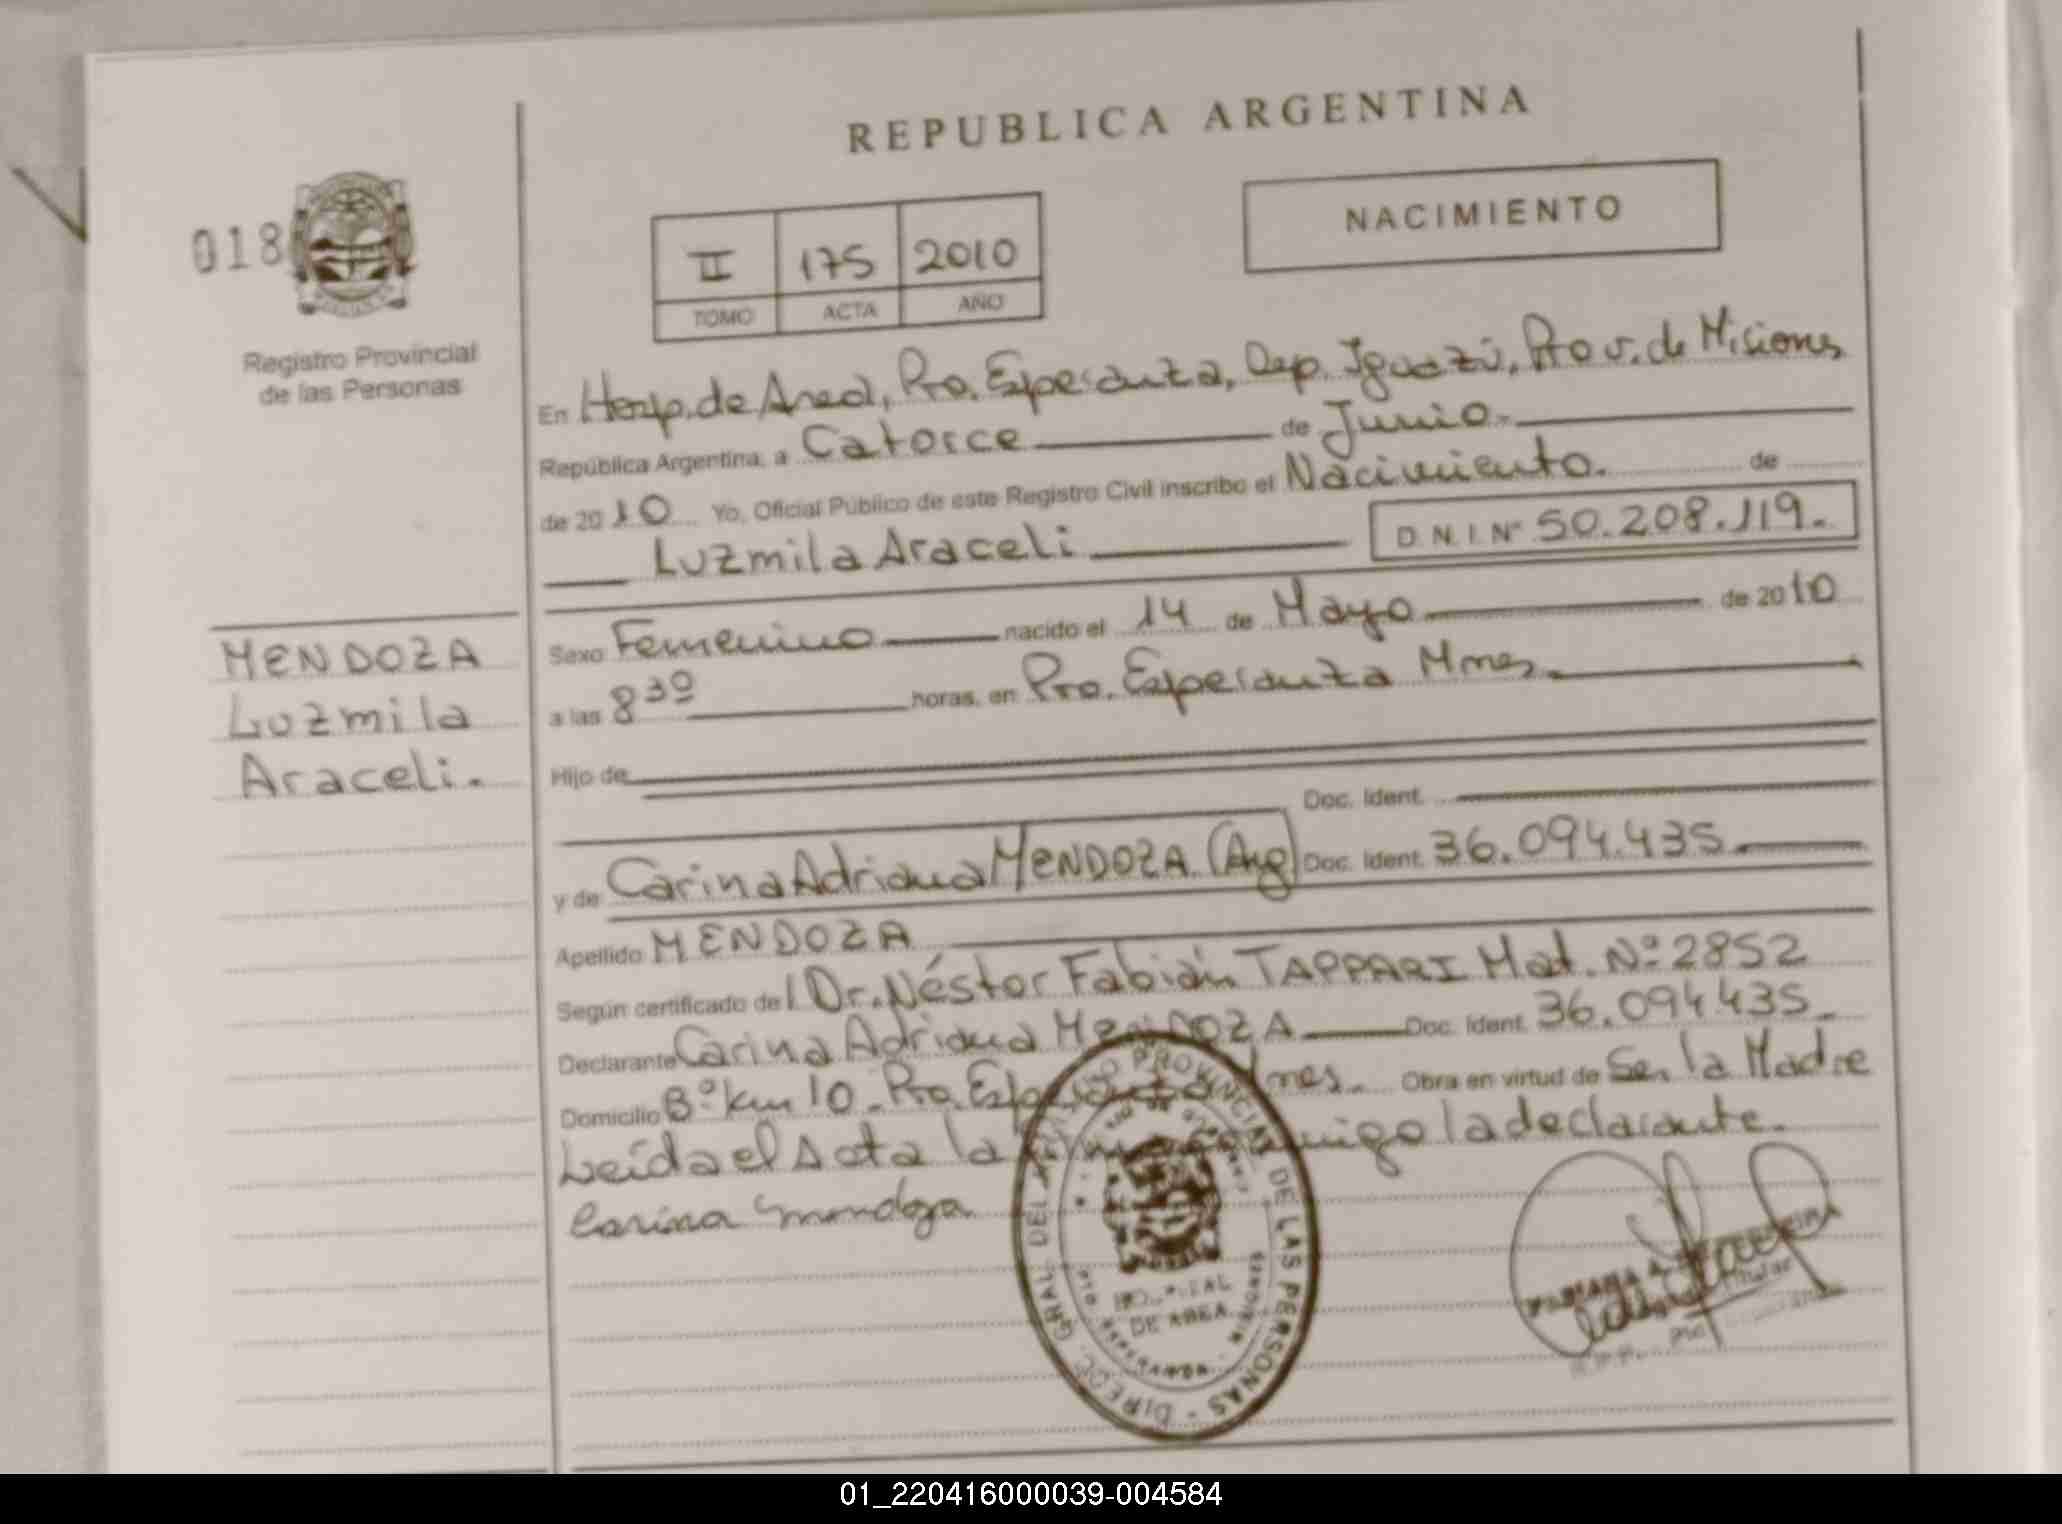 REPUBLICA ARGENTINA
018
NACIMIENTO
II 175 2010
TOMO ACTA AÑO
Registro Provincial
de las Personas
En Hosp. de Area, Pto. Esperanza, Dep. Iguazú, Prov. de Misiones
República Argentina, a Catorce de Junio.-
de 2010 Yo, Oficial Público de este Registro Civil inscribo el Nacimiento. de
Luzmila Araceli D.N.I. Nº 50.208.119.-
MENDOZA
Luzmila
Araceli.
Sexo Femenino nacido el 14 de Mayo de 2010
a las 8 30 horas, en Pto. Esperanza Mnes.
Hijo de
Doc. Ident.
y de Carina Adriana MENDOZA. (Arg) Doc. Ident. 36.094.435.
Apellido MENDOZA
Según certificado del Dr. Néstor Fabián TAPPARI Mat. Nº 2852
Declarante Carina Adriana MENDOZA Doc. Ident. 36.094.435.-
Domicilio Bº km 10. Pto. Esperanza Mnes. Obra en virtud de Ser la Madre
Leída el Acta la firma conmigo la declarante.
Carina Mendoza
DIRECC. GRAL. DEL REGISTRO PROVINCIAL DE LAS PERSONAS
HOSPITAL
DE AREA
01_220416000039-004584